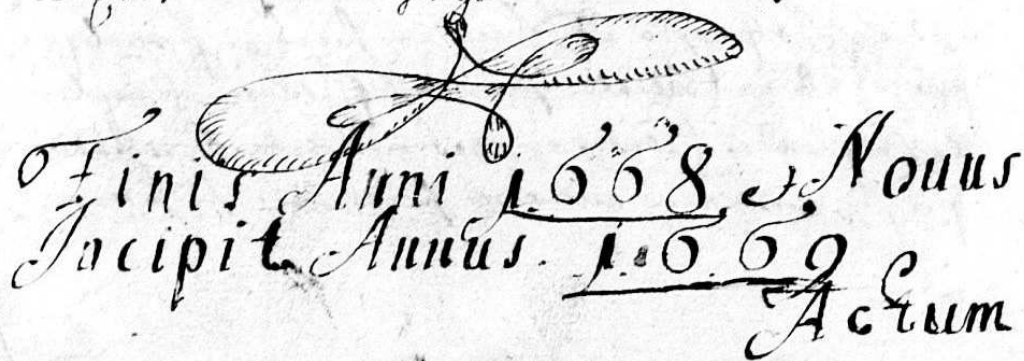 Finis Anni 1668 et Nouus
Incipit Annus. 1.669
Actum